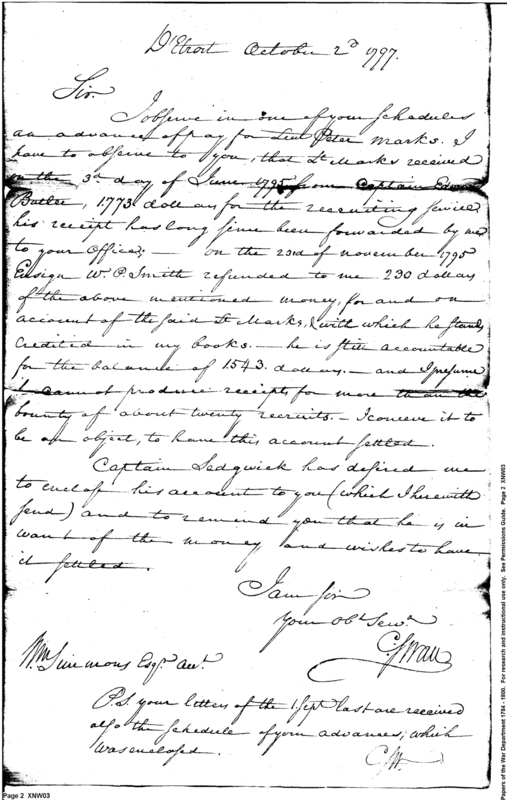 D'Etroit October 2d 1797.
Sir.
I observe in one of your Schedules
an advance of pay for Lieut Peter Marks. I
have to observe to you, that Lt Marks received
on the 3d day of June 1795 from Captain Edwd
Butler, 1.773 dollars for the recruiting service
his receipt has long since been forwarded by me
to your Office; — on the 23rd of november 1795
Ensign Wm P. Smith refunded to me 230 dollars
of the above mentioned money, for and on
account of the said Lt Marks, & with which he stands
Credited in my books. — he is still accountable
for the balance of 1543. dollars. — and I presume
cannot produce receipts for more than the
bounty of about twenty recruits. — I conceive it to
be an object, to have this account settled.
Captain Sedgwick has desired me
to enclose his account to you (which I herewith
send) and to remind you that he is in
want of the money and wishes to have
it settled.
I am Sir
your obt Servt
C Swan
Wm Simmons Esqr. aut.
P.S. your letters of the 1. Sept last are received
also the schedule of your advances, which
was enclosed.
C.S.
Page 2 XNW03
Papers of the War Department 1784 - 1800. For research and instructional use only. See Permissions Guide. Page 2 XNW03